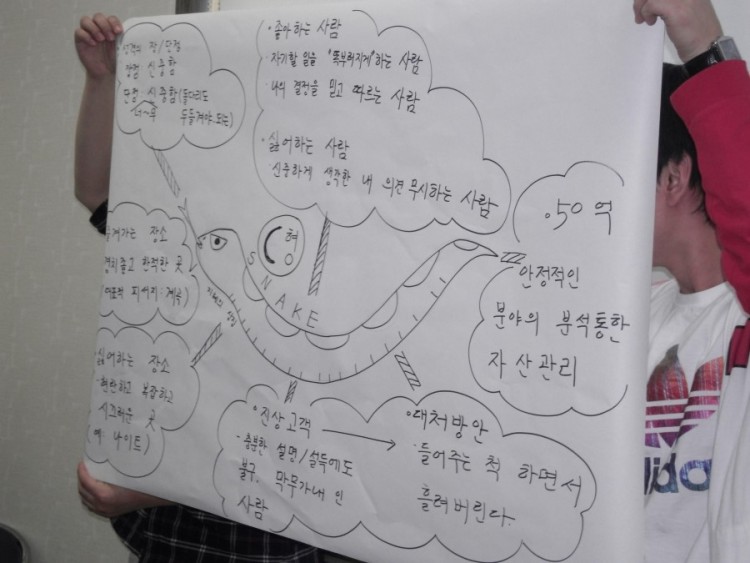 성격의 장/단점
장점 신중함
단점 - 신중함(돌다리도
너~무 두들겨야 되는)
· 좋아하는 사람
· 자기할 일을 "똑부러지게"하는 사람
· 나의 결정을 믿고 따르는 사람
· 싫어하는 사람
· 신중하게 생각한 내 의견 무시하는 사람
.50억
안정적인
분야의 분석통한
자산관리
즐겨가는 장소
경치좋고 한적한 곳
피서지 : 계곡)
C형
SNAKE
싫어하는 장소
· 현란하고 복잡하고
시끄러운 곳
예 나이트)
· 진상고객
· 충분한 설면/설득에도
불구, 막무가내 인
사람
· 대처방안
· 들어주는 척 하면서
흘려버린다.
adidas